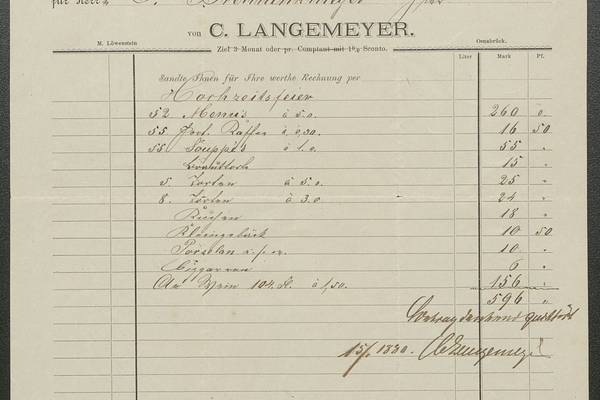 für Herrn C.
von C. LANGEMEYER.
M. Löwenstein Osnabrück.
Ziel 3 Monat oder pr. Comptant mit 1% Sconto.
Liter Mark Pf.
Sandte Ihnen für Ihre werthe Rechnung per
Hochzeitsfeier
52 Menus à 5.0. 260 0
55 Port. Kaffee à 0,30. 16 50
55 Souppe's à 1.0. 55 "
15 "
5. Torten à 5.0. 25 "
8. Torten à 3.0 24 "
Kuchen 18 "
Kleingebäck 10 50
Porzelan u.s.w. 10 "
Ciggarren 6 "
An Wein 104. Fl. à 1,50. 156 "
596 "
Betrag dankend quittirt
15/ 1880. CLangemeyer